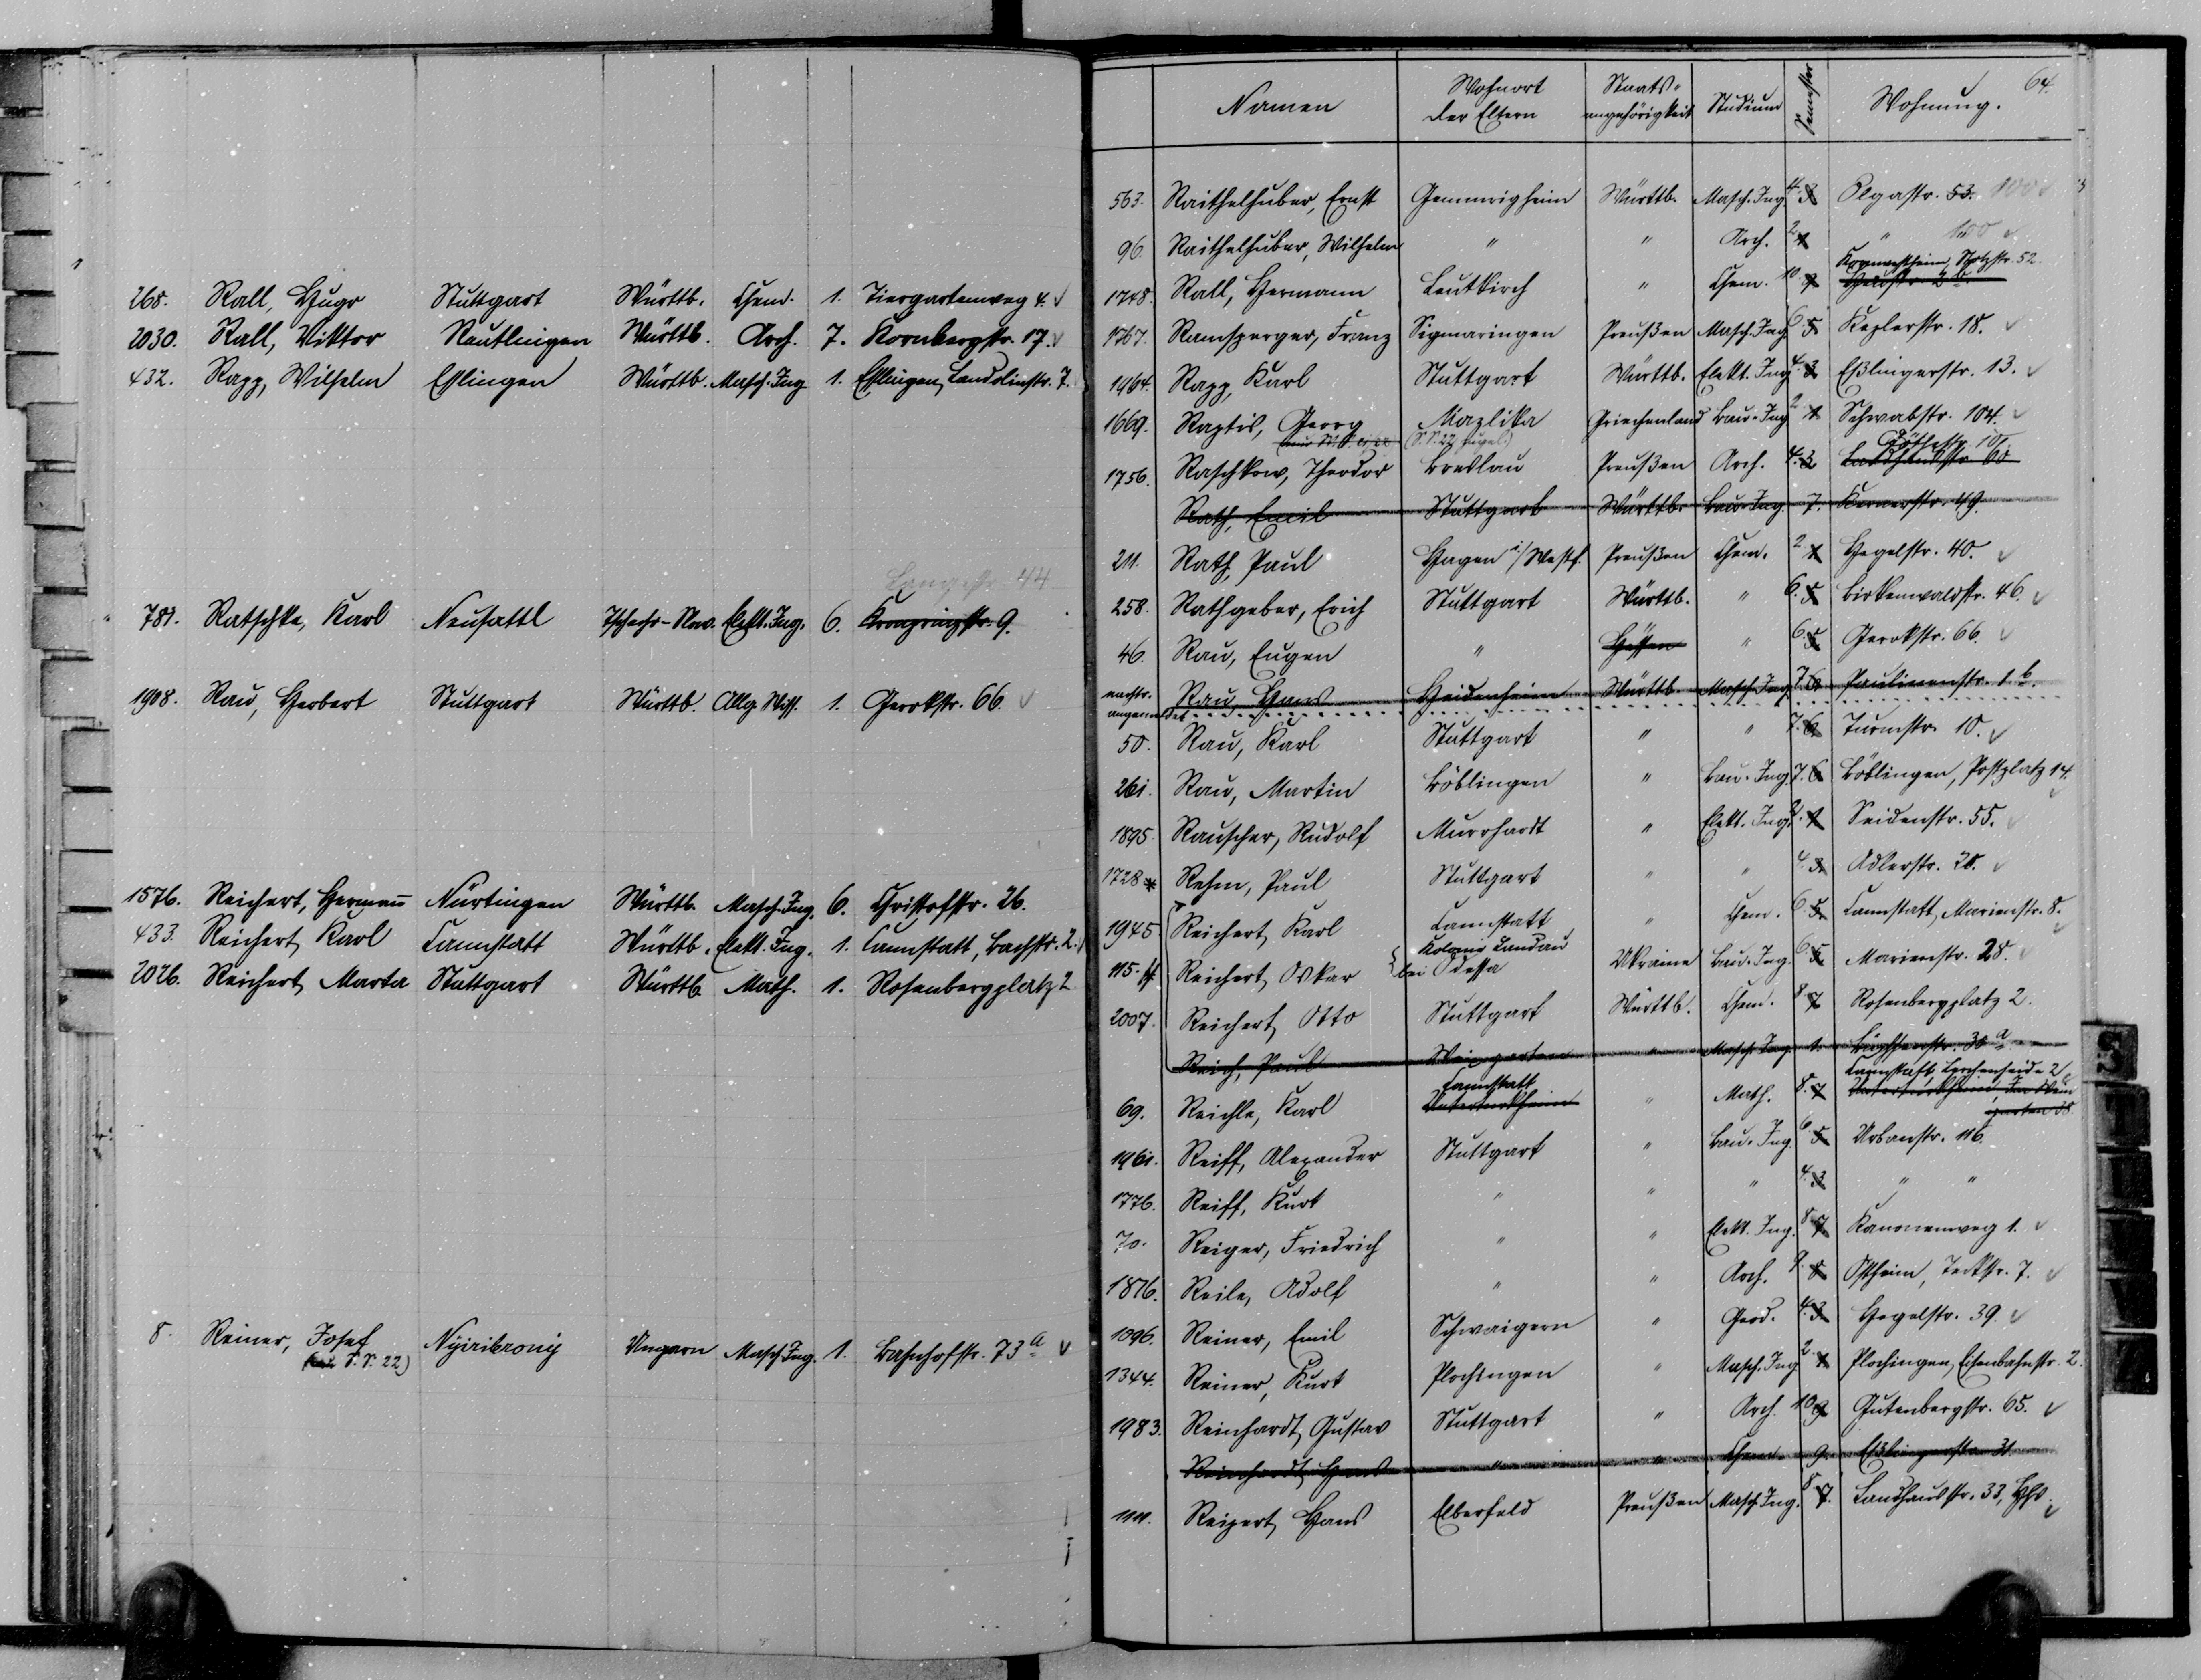 268. Rall, Hugo Stuttgart Württb. Chem. 1. Tiergartenweg 4.
2030. Rall, Viktor Reutlingen Württb. Arch. 7. Kornbergstr. 17.
432. Rapp, Wilhelm Eßlingen Württb. Masch. Ing 1. Eßlingen, Landolinstr. 7.
Langestr. 44
781. Ratschke, Karl Neusattl Tschecho-Slow. Elekt. Ing. 6. Kronprinzstr. 9.
1908. Rau, Herbert Stuttgart Württb. Allg. Wiss. 1. Gerokstr. 66.
1576. Reichert, Hermann Nürtingen Württb. Masch. Ing. 6. Christofstr. 26.
433. Reichert, Karl Cannstatt Württb. Elekt. Ing. 1. Cannstatt, Bachstr. 2.
2026. Reichert, Marta Stuttgart Württb. Math. 1. Rosenbergplatz 2
8. Reiner, Josef Nyiribronÿ Ungarn Masch. Ing. 1. Bahnhofstr. 73 a
S.S. 22)
64.
Namen Wohnort der Eltern Staats-angehörigkeit Studium Semester Wohnung.
563. Raithelhuber, Ernst Gemmrigheim Württb. Masch. Ing. 4. 3 Olgastr. 53. 100
96. Raithelhuber, Wilhelm " " Arch. 2 1 " 100
Kornwestheim, Stotzstr. 52.
1748. Rall, Hermann Leutkirch " Chem. 10. 9
1767. Ramsperger, Franz Sigmaringen Preußen Masch. Ing 6. 5 Keplerstr. 18.
1964. Rapp, Karl Stuttgart Württb. Elekt. Ing 4. 3 Eßlingerstr. 13.
1669. Raptis, Georg Mazlika Griechenland Bau-Ing 2. 1 Schwabstr. 104.
1756. Raschkow, Theodor Breslau Preußen Arch. 4. 3 Landhausstr. 60
Rath, Emil Stuttgart Württb. Bau-Ing 7. Kernerstr. 49.
211. Rath, Paul Hagen i/Westf. Preußen Chem. 2 1 Hegelstr. 40.
258. Rathgeber, Erich Stuttgart Württb. " 6. 5 Birkenwaldstr. 46.
46. Rau, Eugen " Hessen " 6. 5 Gerokstr. 66.
nachtr. Rau, Hans Heidenheim Württb. Masch. Ing 7. 6 Paulinenstr. 1 b.
50. Rau, Karl Stuttgart " " 7. 6 Turmstr. 10.
261. Rau, Martin Böblingen " Bau-Ing. 7. 6 Böblingen, Postplatz 14.
1895. Rauscher, Rudolf Murrhardt " Elekt. Ing. 2. 1 Seidenstr. 55.
1728 * Rehm, Paul Stuttgart " " 4. 3. Adlerstr. 20.
1945 Reichert, Karl Cannstatt " Chem. 6. 5. Cannstatt, Marienstr. 8.
Kolonie Landau
115. Reichert, Oskar bei Odessa Ukraine Bau-Ing. 6. 5 Marienstr. 28.
2007. Reichert, Otto Stuttgart Württb. Chem. 8 7 Rosenbergplatz 2.
Reich, Paul Weingarten " Masch. Ing. 1. 30 a
Cannstatt Cannstatt, Lerchenheide 2
69. Reichle, Karl Untertürkheim " Math. 8. 7 Untertürkheim, Im Wein
garten 38.
1961. Reiff, Alexander Stuttgart " Bau-Ing 6. 5 Urbanstr. 116.
1776. Reiff, Kurt " " " 4. 3. " "
70. Reiger, Friedrich " " Elekt. Ing. 8 7 Kanonenweg 1.
1876. Reile, Adolf " " Arch. 9. 8 Ostheim, Teckstr. 7.
1096. Reiner, Emil Schwaigern " Geod. 4. 3 Hegelstr. 39.
1344. Reiner, Kurt Plochingen " Masch. Ing 2. 1 Plochingen, Eisenbahnstr. 2.
1983. Reinhardt, Gustav Stuttgart " Arch. 10 9 Gutenbergstr. 65.
Reinhardt, Hans " " Chem. 9. Eßlingerstr. 31.
1111. Reipert, Hans Elberfeld Preußen Masch. Ing. 8 7. Landhausstr. 33, Hhs.